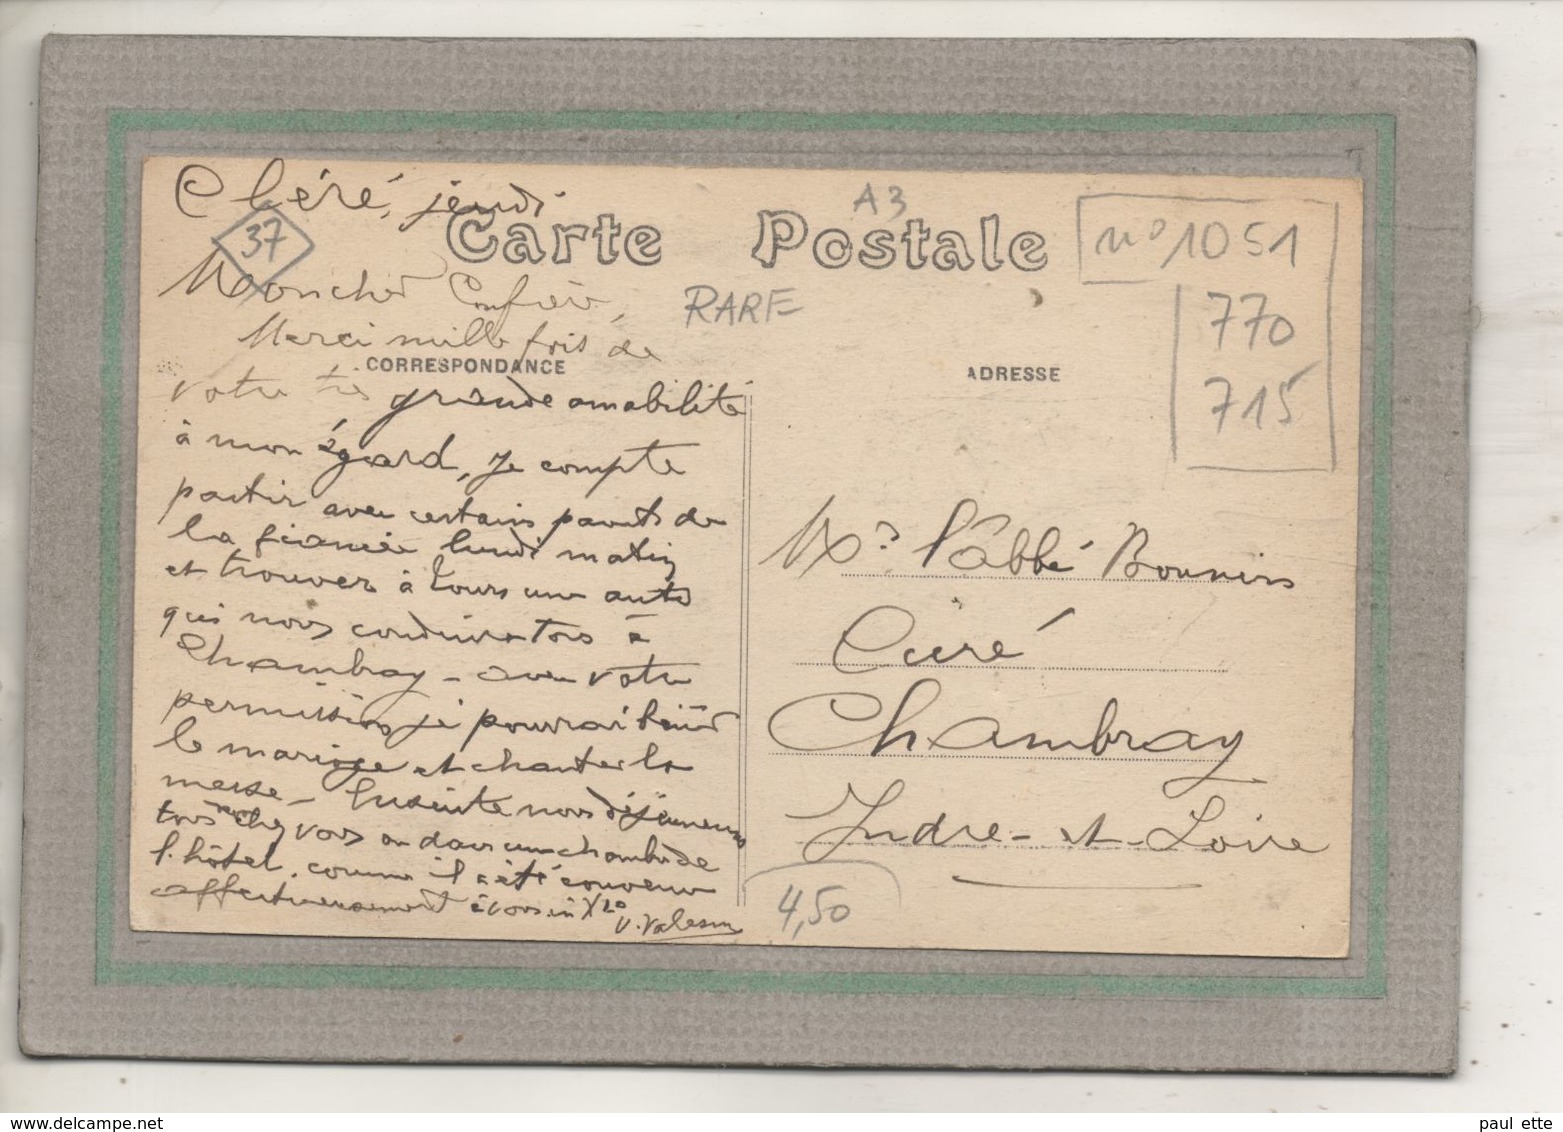 Cléré, jeudi
37
Carte Postale
A3
n° 1051
770
715
RARE
Mon cher Confrère,
Merci mille fois de
CORRESPONDANCE
ADRESSE
votre très grande amabilité
à mon égard, je compte
partir avec certains parents de
la fiancée lundi matin
et trouver à Tours une auto
qui nous conduira tous à
Chambray - avec votre
permission je pourrai bénir
le mariage et chanter la
messe - Ensuite nous déjeunerons
tous chez vous ou dans une chambre de
l'hôtel, comme il a été convenu
affectueusement à vous in Xto
V. Valesm
Mr l'abbé
Curé
Chambray
Indre-et-Loire
4,50
www.delcampe.net
paul ette